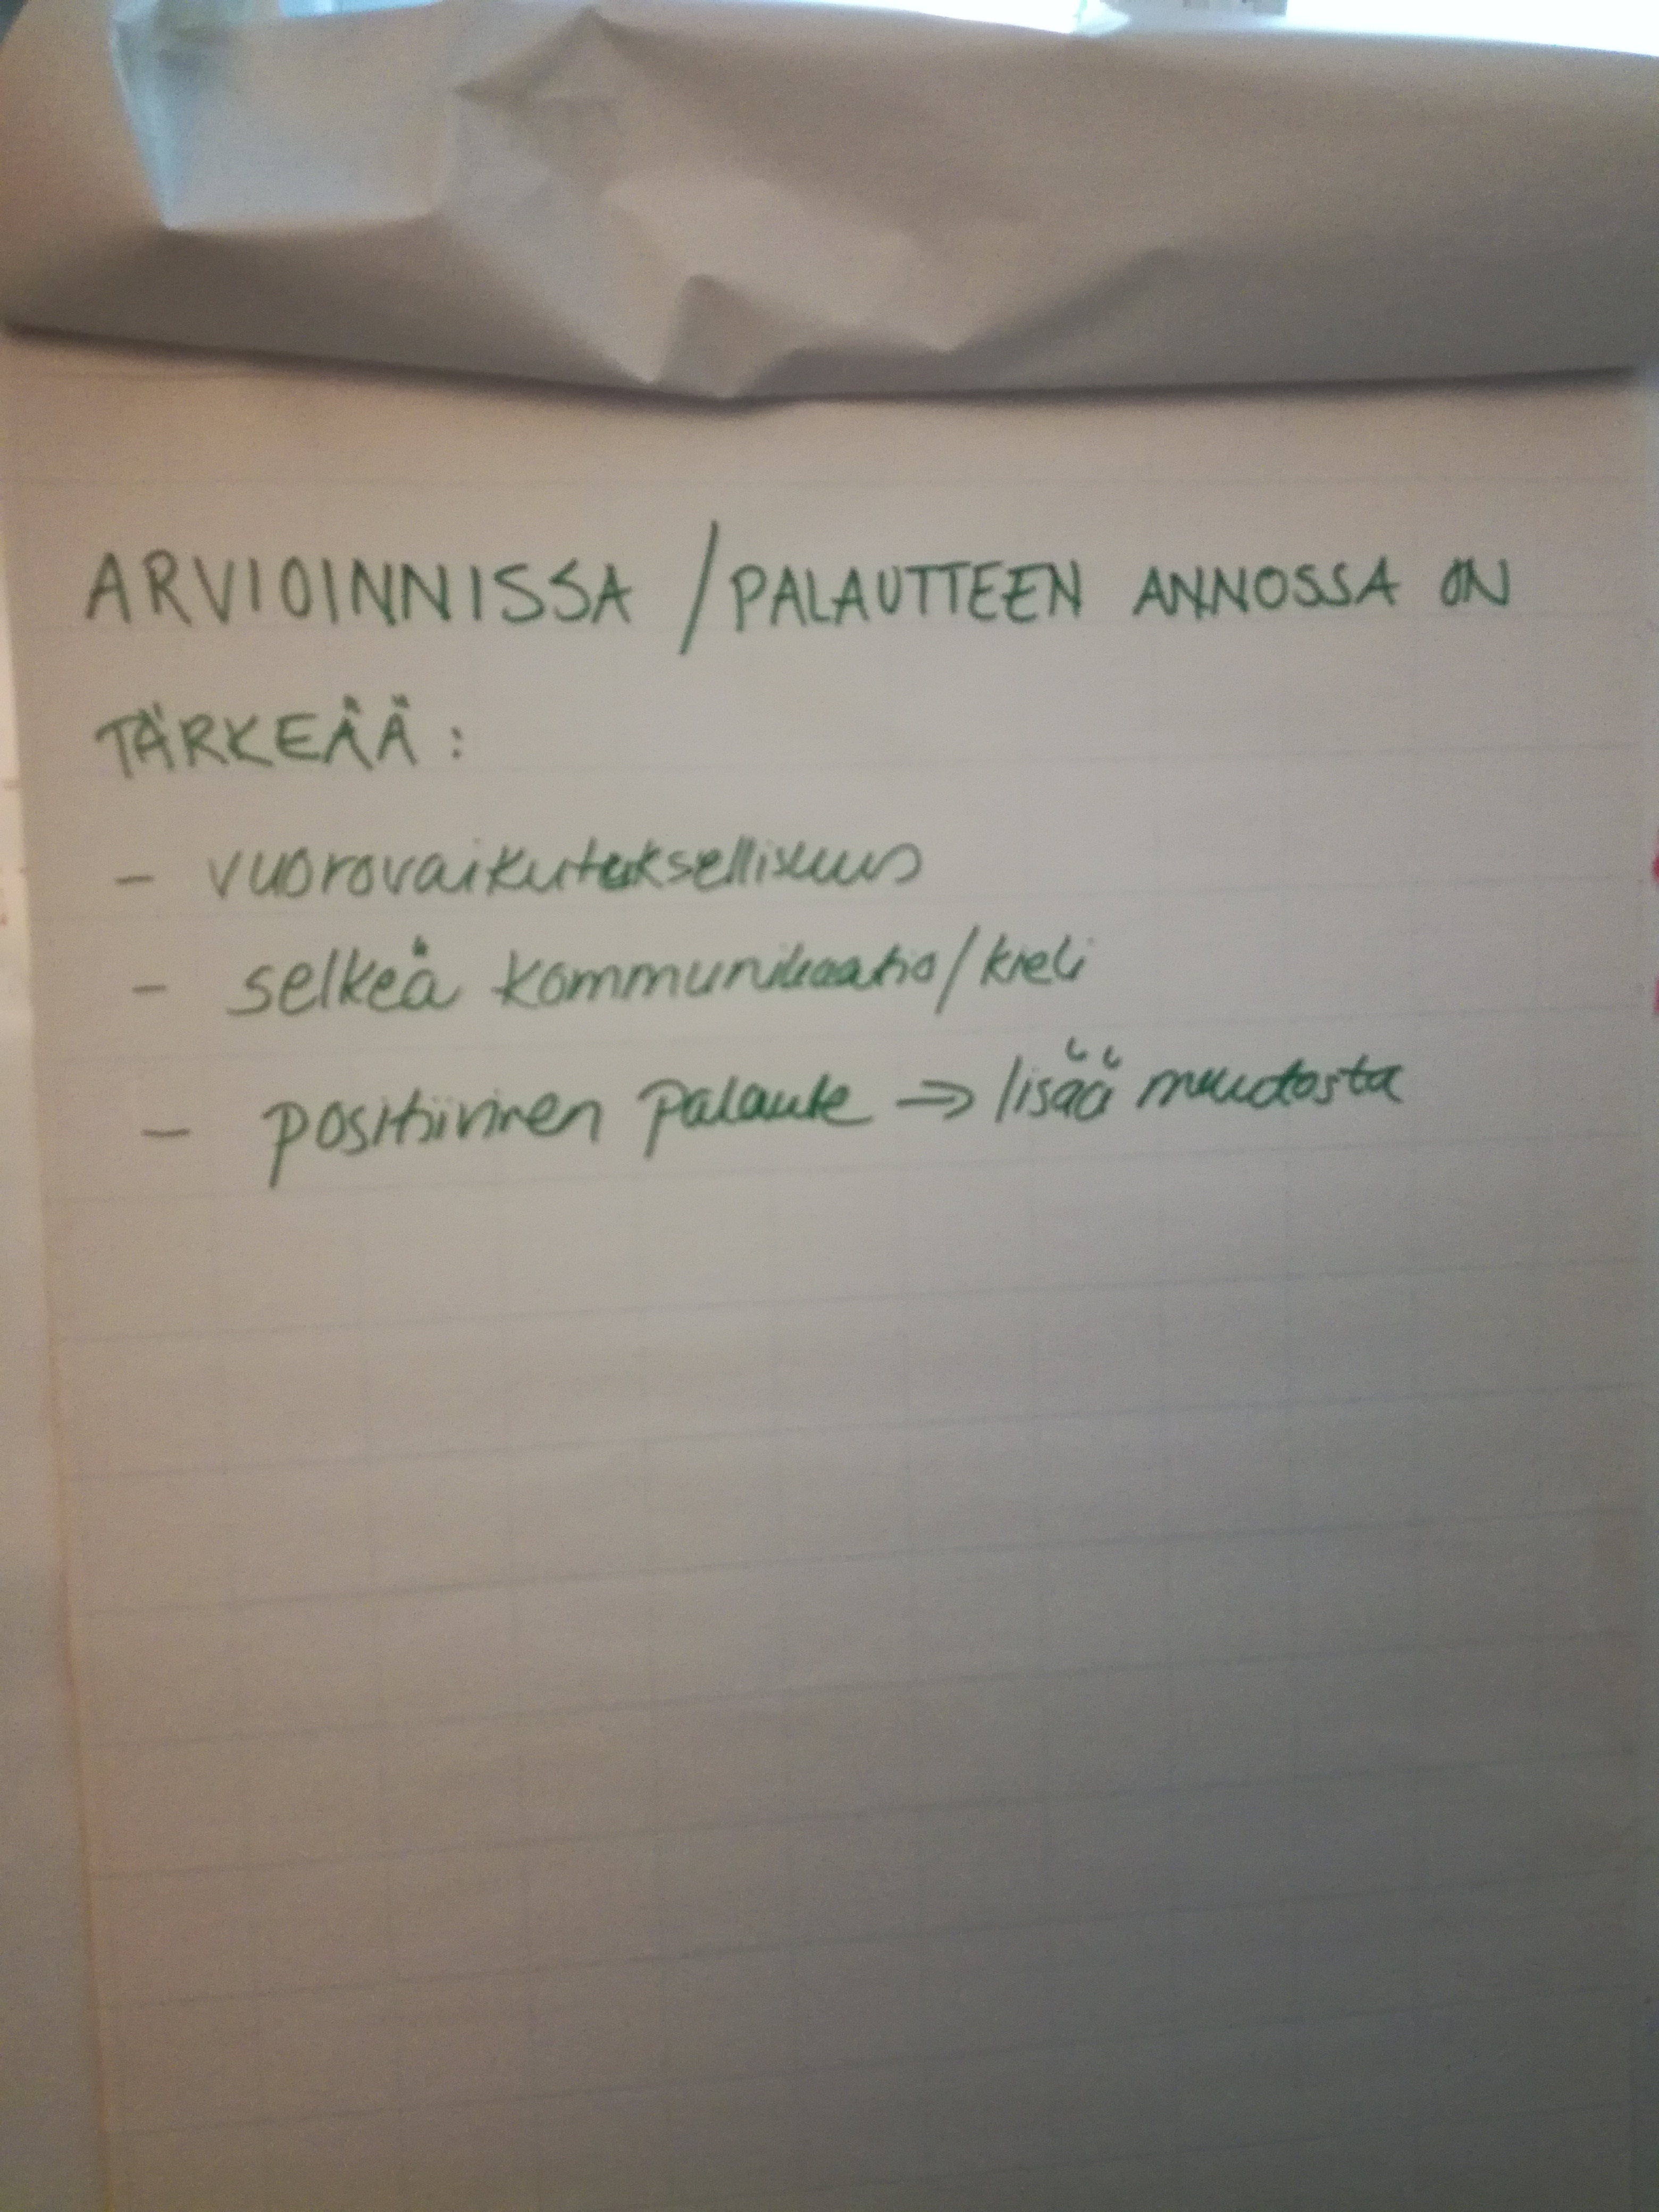 ARVIOINNISSA / PALAUTTEEN ANNOSSA ON
TÄRKEÄÄ :
- vuorovaikutuksellisuus
- selkeä kommunikaatio/kieli
- positiivinen palaute ⇒ lisää muutosta